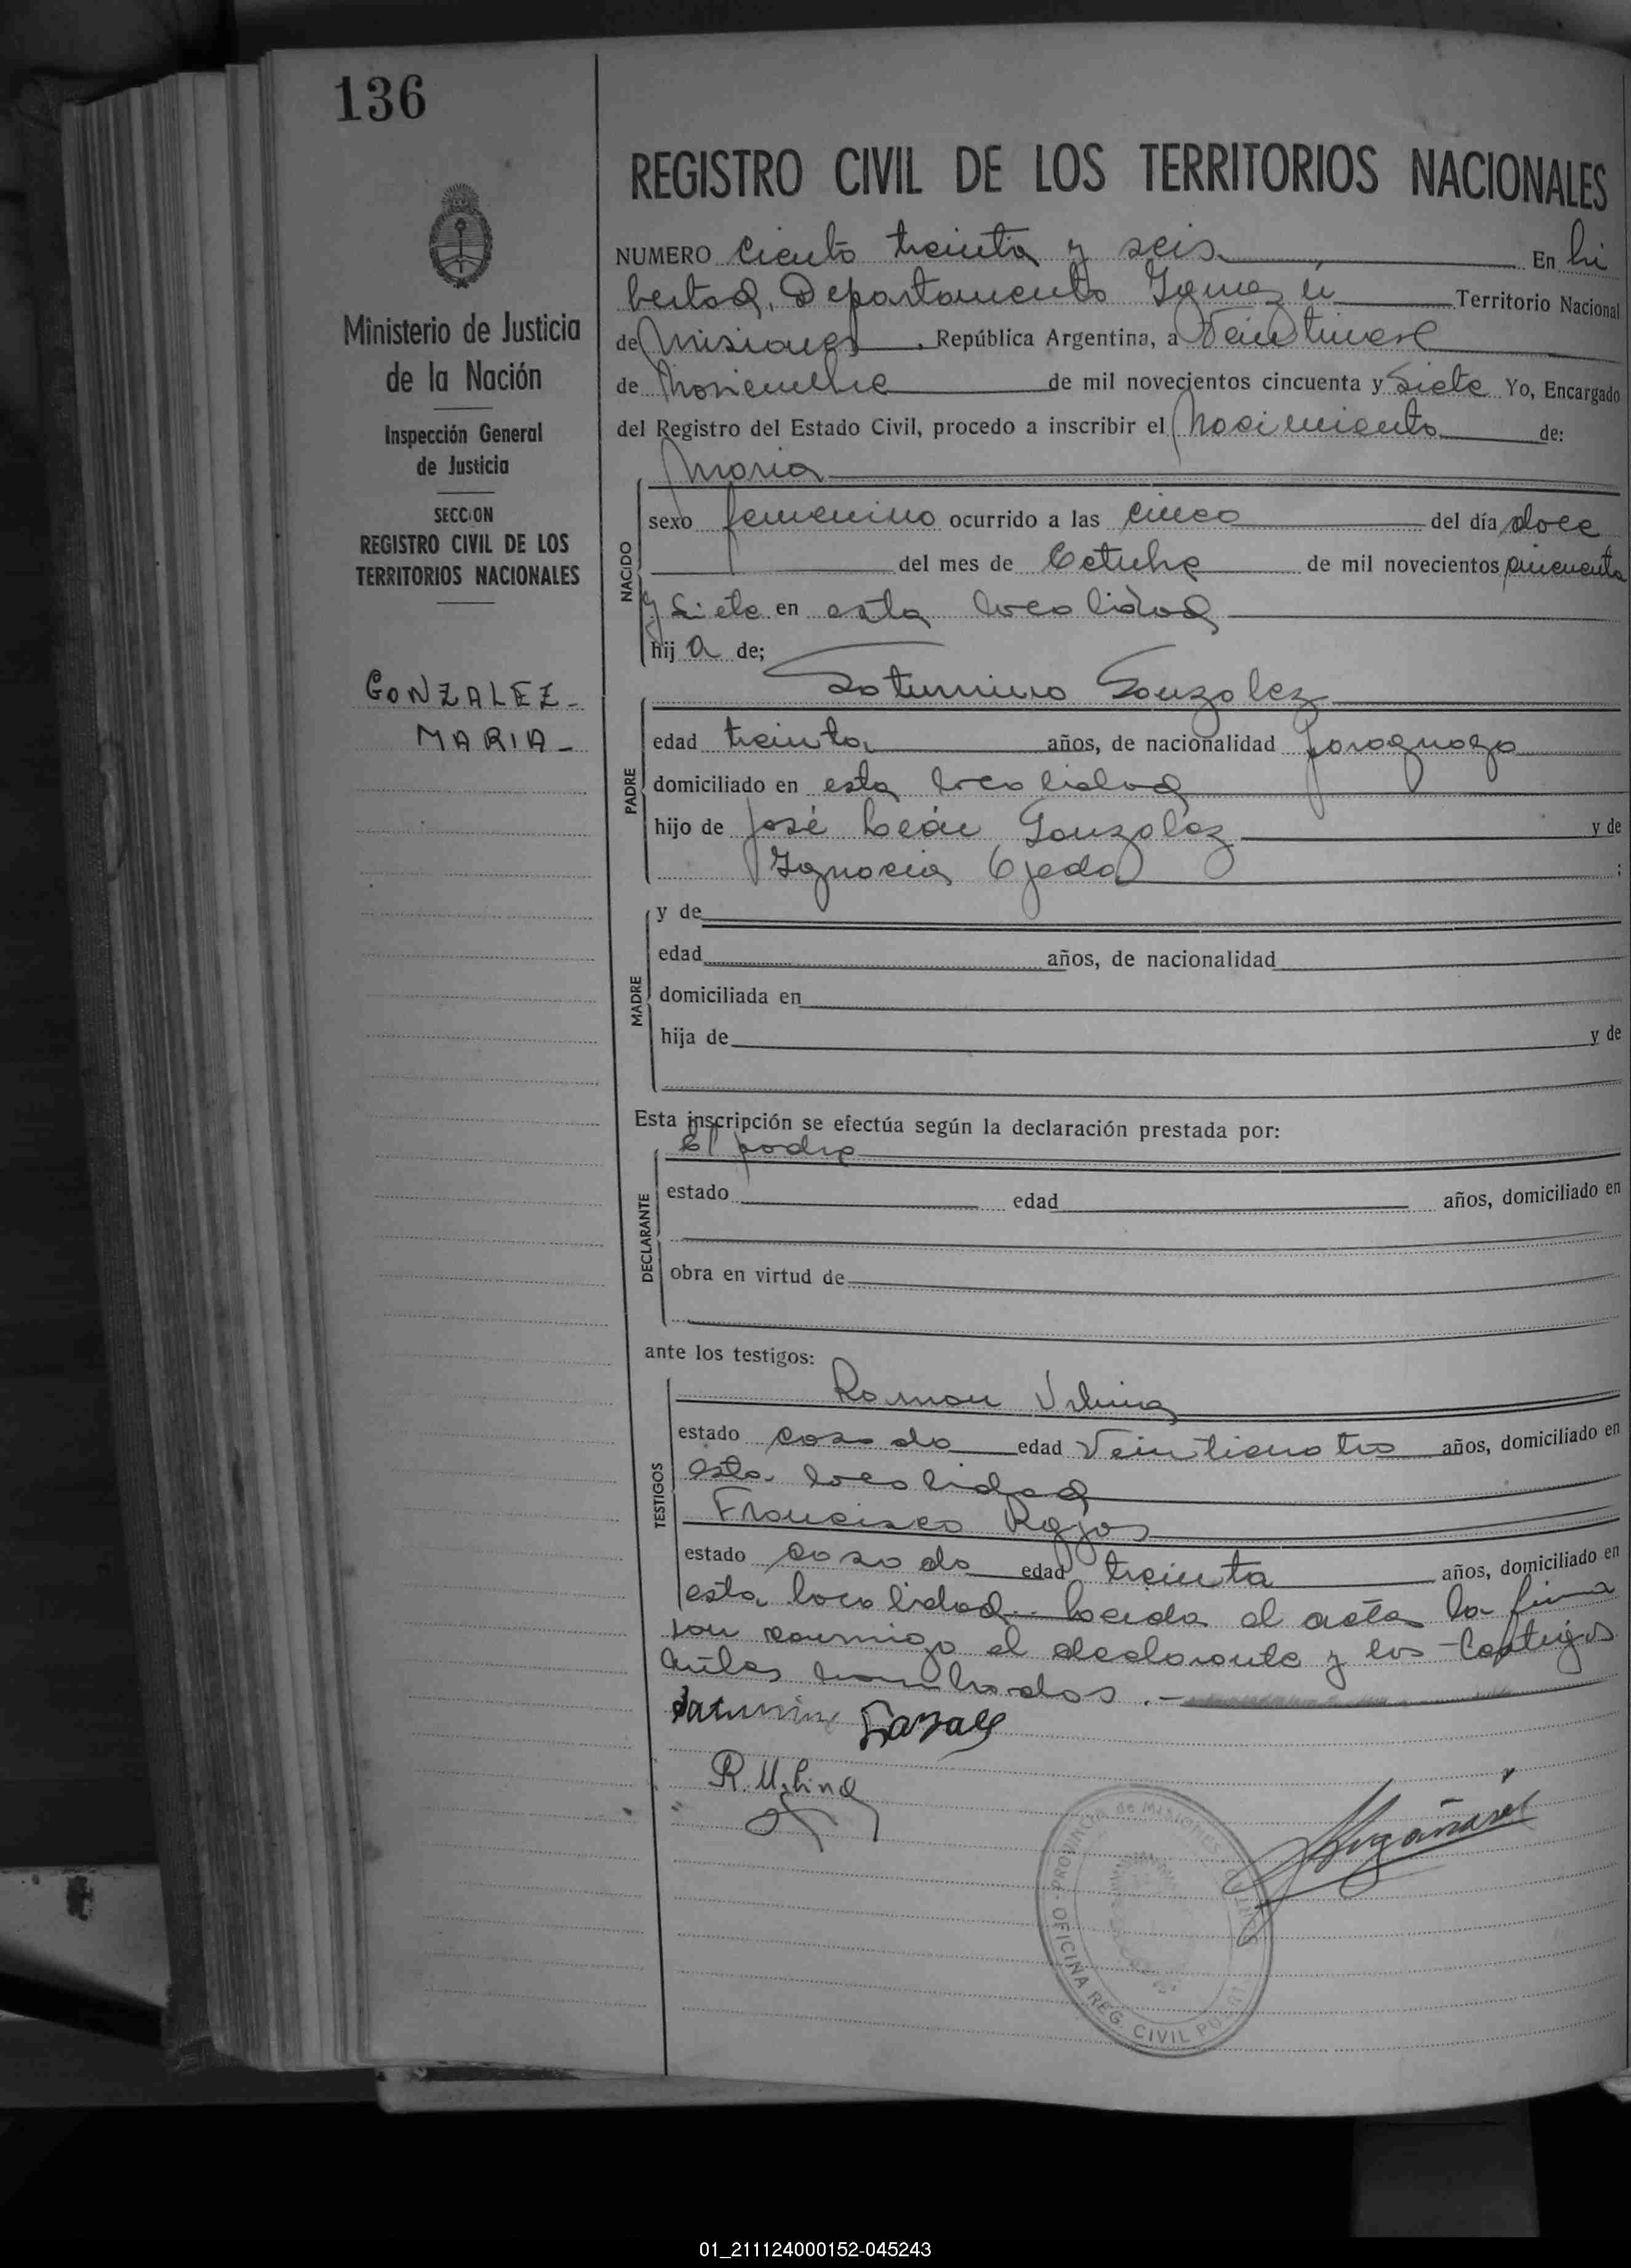 136
REGISTRO CIVIL DE LOS TERRITORIOS NACIONALES
Ministerio de Justicia
de la Nación
Inspección General
de Justicia
SECCION
REGISTRO CIVIL DE LOS
TERRITORIOS NACIONALES
GONZALEZ-
MARIA-
NUMERO ciento treinta y seis En Li
bertad, Departamento Iguazú Territorio Nacional
de Misiones, República Argentina, a Veintinueve
de Noviembre de mil novecientos cincuenta y siete Yo, Encargado
del Registro del Estado Civil, procedo a inscribir el Nacimiento de:
NACIDO
Maria
sexo femenino ocurrido a las cinco del día doce
del mes de Octubre de mil novecientos cincuenta
y siete en esta localidad
hij a de;
PADRE
Saturnino Gonzalez
edad treinta años, de nacionalidad paraguaya
domiciliado en esta localidad
hijo de José León Gonzalez y de
Ignacia Ojeda ;
MADRE
y de
edad años, de nacionalidad
domiciliada en
hija de y de
Esta inscripción se efectúa según la declaración prestada por:
DECLARANTE
El padre
estado edad años, domiciliado en
obra en virtud de
ante los testigos:
TESTIGOS
Ramon
estado casado edad Veinticuatro años, domiciliado en
esta localidad
Francisco Rojas
estado casado edad treinta años, domiciliado en
esta localidad. Leida el acta la firma
con conmigo el declarante y los testigos
antes nombrados.-
R.
PROVINCIA de MISIONES
OFICINA REG. CIVIL
01_211124000152-045243